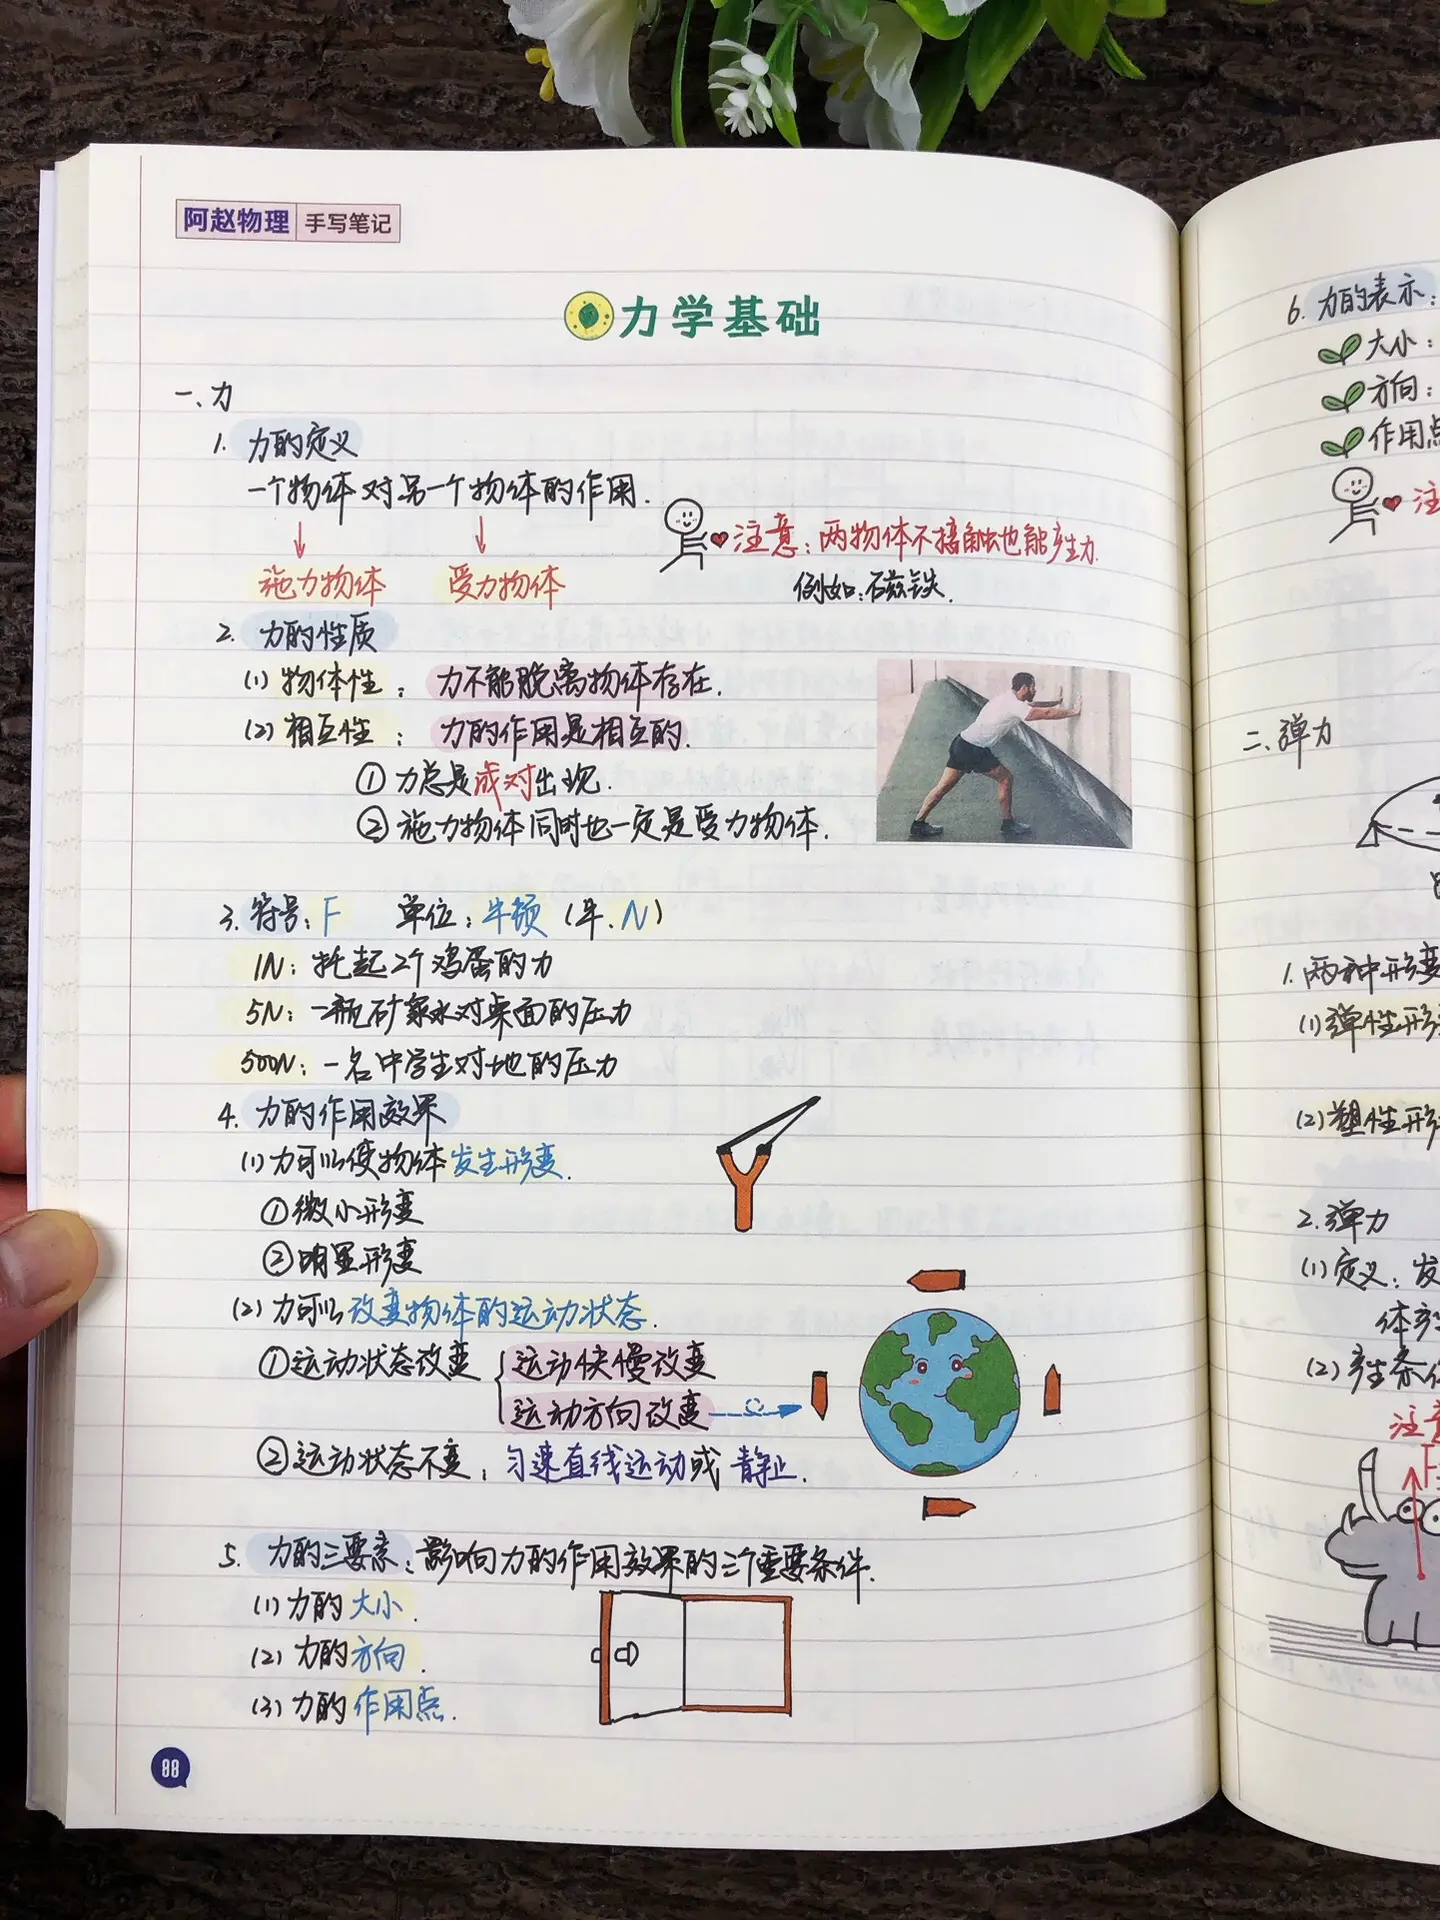 阿赵物理 手写笔记
力学基础
一、力
1. 力的定义
一个物体对另一个物体的作用.
施力物体 受力物体
注意:两物体不接触也能产生力.
例如:磁铁.
2. 力的性质
(1) 物体性: 力不能脱离物体存在.
(2) 相互性: 力的作用是相互的.
① 力总是成对出现.
② 施力物体同时也一定是受力物体.
3. 符号:F 单位:牛顿(牛.N)
1N: 托起2个鸡蛋的力
5N: 一瓶矿泉水对桌面的压力
500N: 一名中学生对地的压力
4. 力的作用效果
(1) 力可以使物体发生形变.
① 微小形变
② 明显形变
(2) 力可以改变物体的运动状态.
① 运动状态改变 { 运动快慢改变
运动方向改变
② 运动状态不变: 匀速直线运动或静止.
5. 力的三要素:影响力的作用效果的三个重要条件.
(1) 力的大小.
(2) 力的方向.
(3) 力的作用点.
88
6. 力的表示:
大小:
方向:
作用点
二、弹力
1. 两种形变
(1) 弹性形
(2) 塑性形
2. 弹力
(1) 定义:发
体产
(2) 产生条
注
F